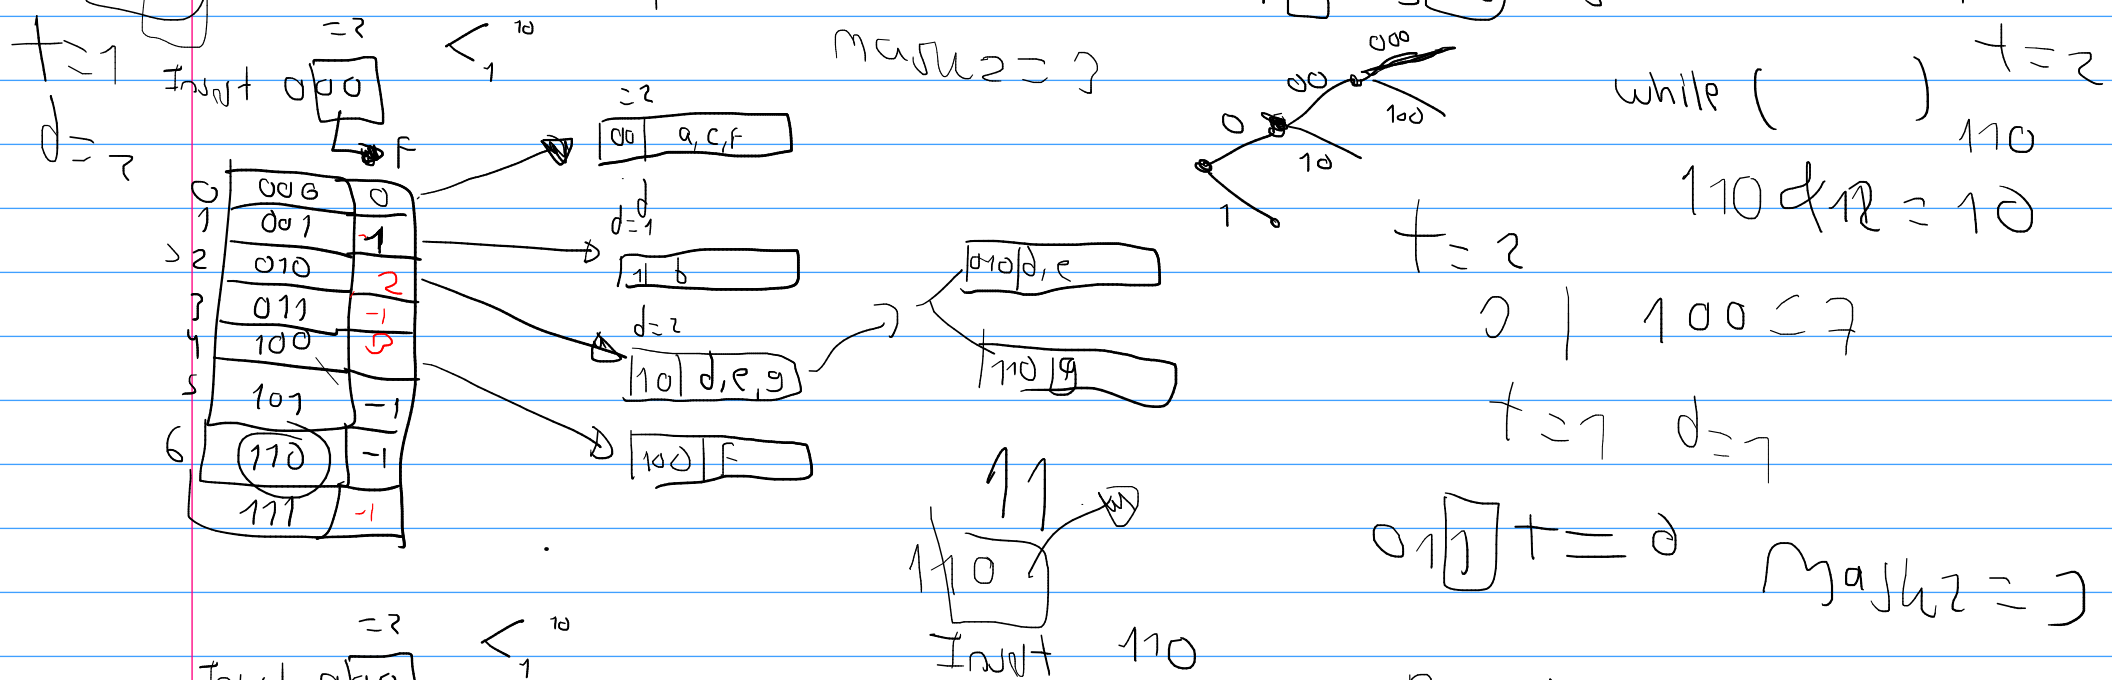 t=1
d=2
=2
< 10
1
Insert 000
F
mask2 = 3
0 000 0
1 001 -1
2 010 2
3 011 -1
4 100
5 101 -1
6 110 -1
111 -1
=2
00 a,c,f
d
d=1
1 b
d=2
10 d,e,g
100 F
010 d,e
110 g
11
110
Insert 110
000
00
100
0
10
1
while ( )
t=2
110
110 & 11 = 10
t=2
100 = 7
t=1 d=1
011 t=d
mask2 = 3
=2
< 10
1